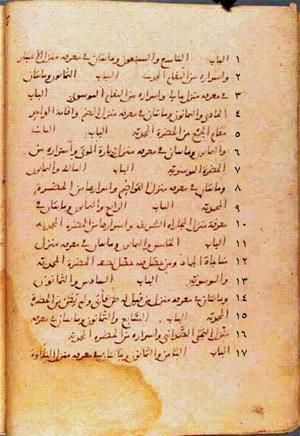 ١ الباب التاسع والسبعون ومائتان في معرفة منزل الاعتبار
٢ واسراره من المقام المحمدي الباب الثمانون ومائتان
٣ في معرفة منزل مالي واسراره من المقام الموسوي الباب
٤ الحادي والثمانون ومائتان في معرفة منزل الضم واقامة الواحد
٥ مقام الجمع من الحضرة المحمدية الباب الثاني
٦ والثمانون ومائتان في معرفة منزل زيارة الموتى واسراره من
٧ الحضرة الموسوية الباب الثالث والثمانون
٨ ومائتان في معرفة منزل القواصم واسرارها من الحضرة
٩ المحمدية الباب الرابع والثمانون ومائتان في
١٠ معرفة منزل المجاراة الشريفة واسرارها من الحضرة المحمدية
١١ الباب الخامس والثمانون ومائتان في معرفة منزل
١٢ مناجاة الجماد ومن حصل فيه حصل نصف الحضرة المحمدية
١٣ والموسوية الباب السادس والثمانون
١٤ ومائتان في معرفة منزل من قيل له كن فابى ولم يكن من الحضرة
١٥ المحمدية الباب السابع والثمانون ومائتان في معرفة
١٦ منزل التجلي الصمداني واسراره من الحضرة المحمدية
١٧ الباب الثامن والثمانون ومائتان في معرفة منزل التلاوة